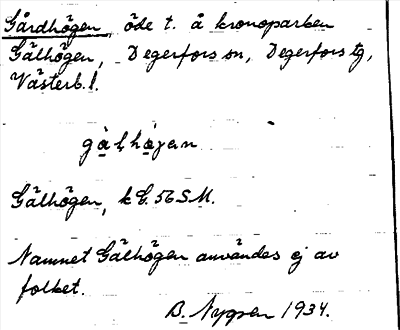 Gårdhögen, öde t. å kronoparken
Gälhögen, Degerfors sn, Degerfors tg,
Västerb. l.
gälhögen
Gälhögen, k G. 56 S.M.
Namnet Gälhögen användes ej av
folket.
B. Nygren 1934.